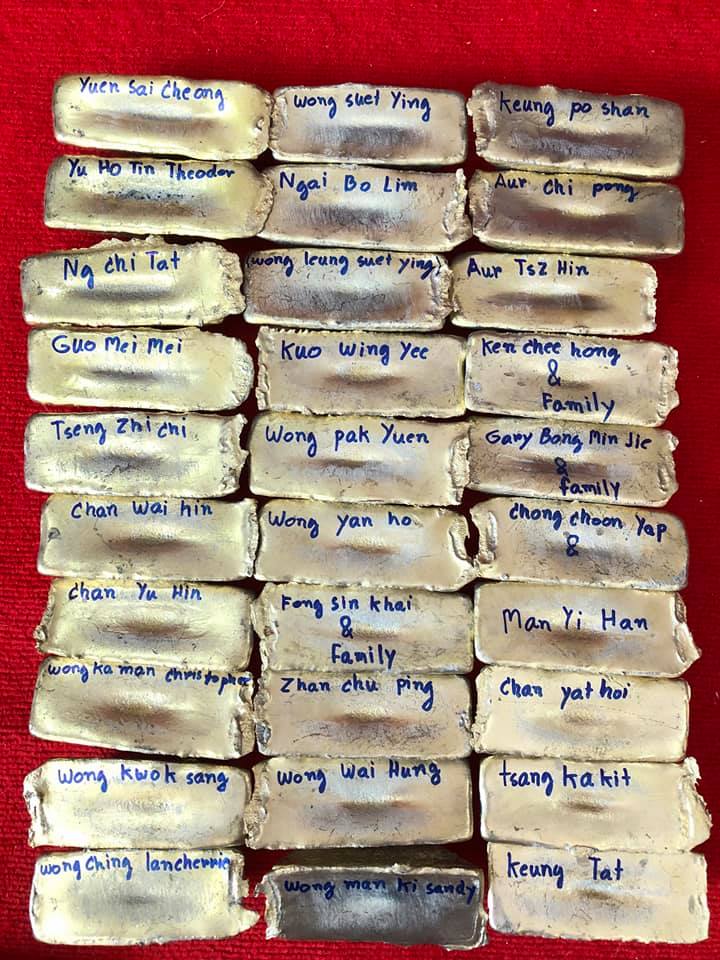 Yuen Sai Cheong
Wong suet Ying
Keung po shan
Yu Ho Tin Theodor
Ngai Bo Lim
Aur chi pong
Ng chi Tat
(Wong leung suet ying)
Aur Tsz Hin
Guo Mei Mei
Kuo Wing Yee
Ken chee hong
&
Family
Tseng Zhi chi
Wong pak Yuen
Gary Bong Min Jie
&
family
Chan Wai hin
Wong yan ho
Chong choon Yap
&
Chan Yu Hin
Fong Sin Khai
&
Family
Man Yi Han
Wong ka man christopher
Zhan chu ping
Chan yat hoi
Wong Kwok sang
Wong Wai Hung
tsang ka kit
Wong Ching lancherrie
Wong man ki sandy
Keung Tat